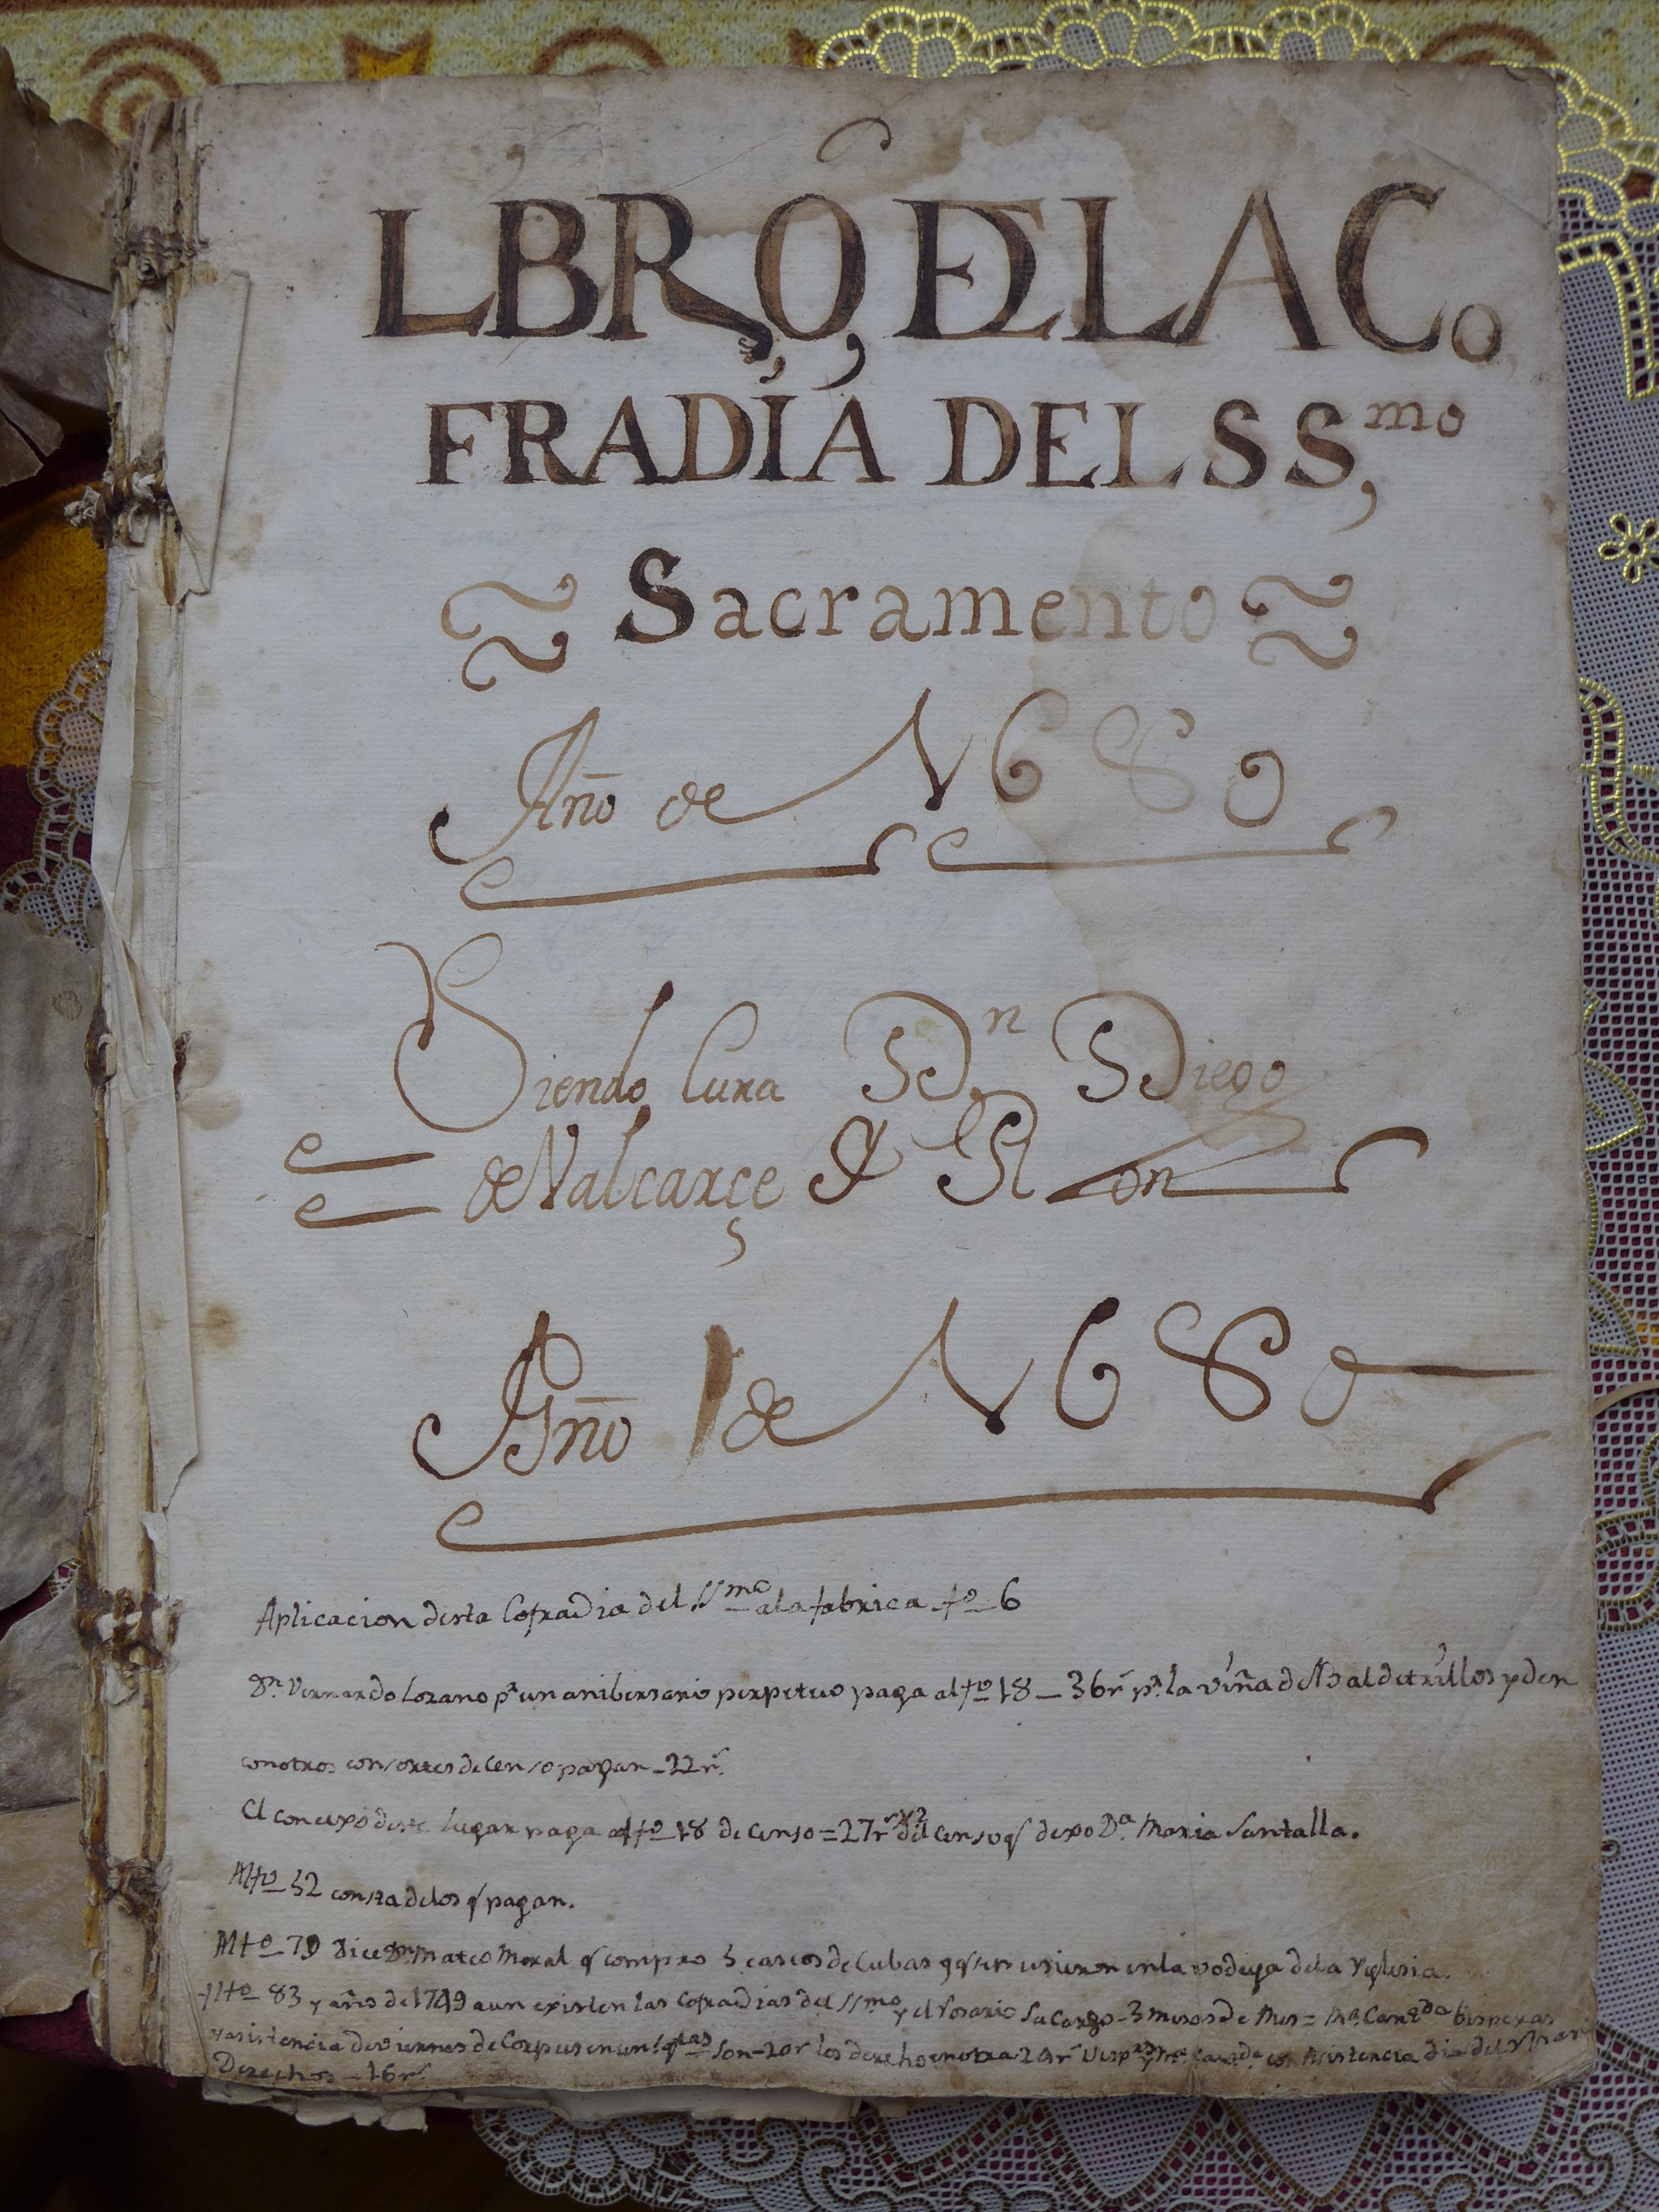 LBRO, DE LA Co
FRADÍA DEL SSmo,
Sacramento
Año de 1680
Siendo Cura Dn Diego
de Valcarçe y Ron
Año de 1680
Aplicacion desta Cofradia del SSmo a la fabrica fo 6
Dn Vernardo Lozano pr un anibersario perpetuo paga al fo 18 – 36 rs pr la viña de Baldetrillos y den
con otros consortes de Censo pagan – 22 rs.
El concexo deste lugar paga al fo 18 de censo = 27 rs del censo q dexo Da. Maria Santalla.
Al fo 52 consta de los q pagan.
Al fo 79 dice Dn Mateo Moral q compro 5 cascos de Cubas q se pusieron en la vodega de la Yglesia.
Al fo 83 y año de 1749 aun existen las Cofradias del SSmo y el Rosario Su Cargo – 3 misas de Mes = Ma. Cantda bisperas
y asistencia de viernes de Corpus son – 20 rs los derechos en otra 20 rs Visps y Ma. Cantda con Asistencia dia del
Derechos – 16 rs